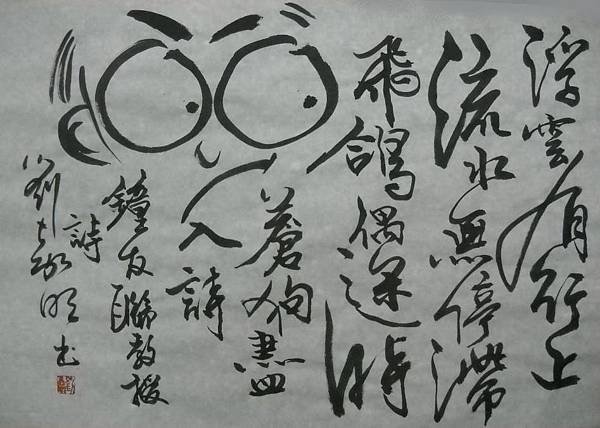 浮雲有行止
流水無停滯
飛鴿偶時
蒼狗盡
入詩
鐘友聯教授
詩
劉明书